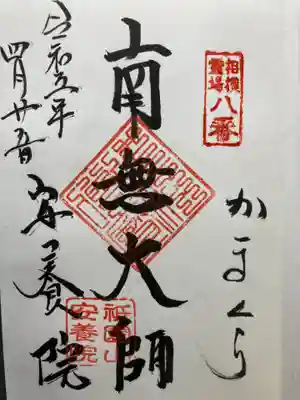 相模
霊場
八番
かまくら
南無大師
令和五年
四月廿五日
安養院
祇園山
安養院